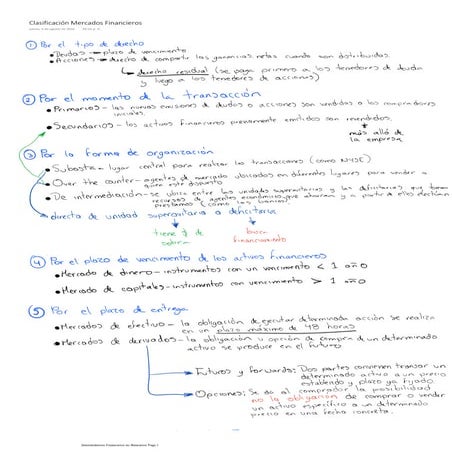 Clasificación Mercados Financieros
① Por el tipo de derecho
• Deudas → plazo de vencimiento
• Acciones → derecho de compartir las ganancias netas cuando son distribuidas.
derecho residual (se paga primero a los tenedores de deuda
y luego a los tenedores de acciones)
② Por el momento de la transacción
• Primarios - las nuevas emisiones de deudas o acciones son vendidas a los compradores
iniciales.
• Secundarios - los activos financieros previamente emitidos son revendidos.
más allá de
la empresa
③ Por la forma de organización
• Subasta - lugar central para realizar las transacciones (como NYSE)
• Over the counter - agentes de mercado ubicados en diferentes lugares para vender a
quien esté dispuesto
• De intermediación - se ubica entre las unidades superavitarias y las deficitarias que toman
recursos de agentes económicos que ahorran y a partir de ellos
prestamos (como los bancos)
directa de unidad superavitaria a deficitaria
tiene $ de
sobra
busca
financiamiento
④ Por el plazo de vencimiento de los activos financieros
• Mercado de dinero - instrumentos con un vencimiento < 1 año
• Mercado de capitales - instrumentos con vencimiento > 1 año
⑤ Por el plazo de entrega
• Mercados de efectivo - la obligación de ejecutar determinada acción se realiza
en un plazo máximo de 48 horas
• Mercados de derivados - la obligación u opción de compra de un determinado
activo se produce en el futuro
Futuros y Forwards: Dos partes convienen transar un
determinado activo a un precio
establecido y plazo ya fijado
Opciones: Se da al comprador la posibilidad
no la obligación de comprar o vender
un activo específico a un determinado
precio en una fecha concreta.